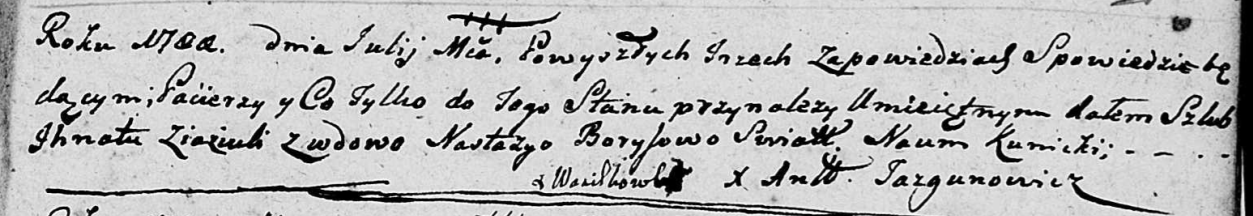 Roku 1788. dnia Julij Mca. Powyszłych Trzech Zapowiedziach Spowiedzie bę
dącym, Pacierzy y Co Tylko do Tego Stanu przynależy Umieiętnym dałem Szlub
Ihnatu Ziaziuli z wdowo Nastazyo Borysowo Swiatt. Naum Kunicki;
X Antt. Jazgunowicz